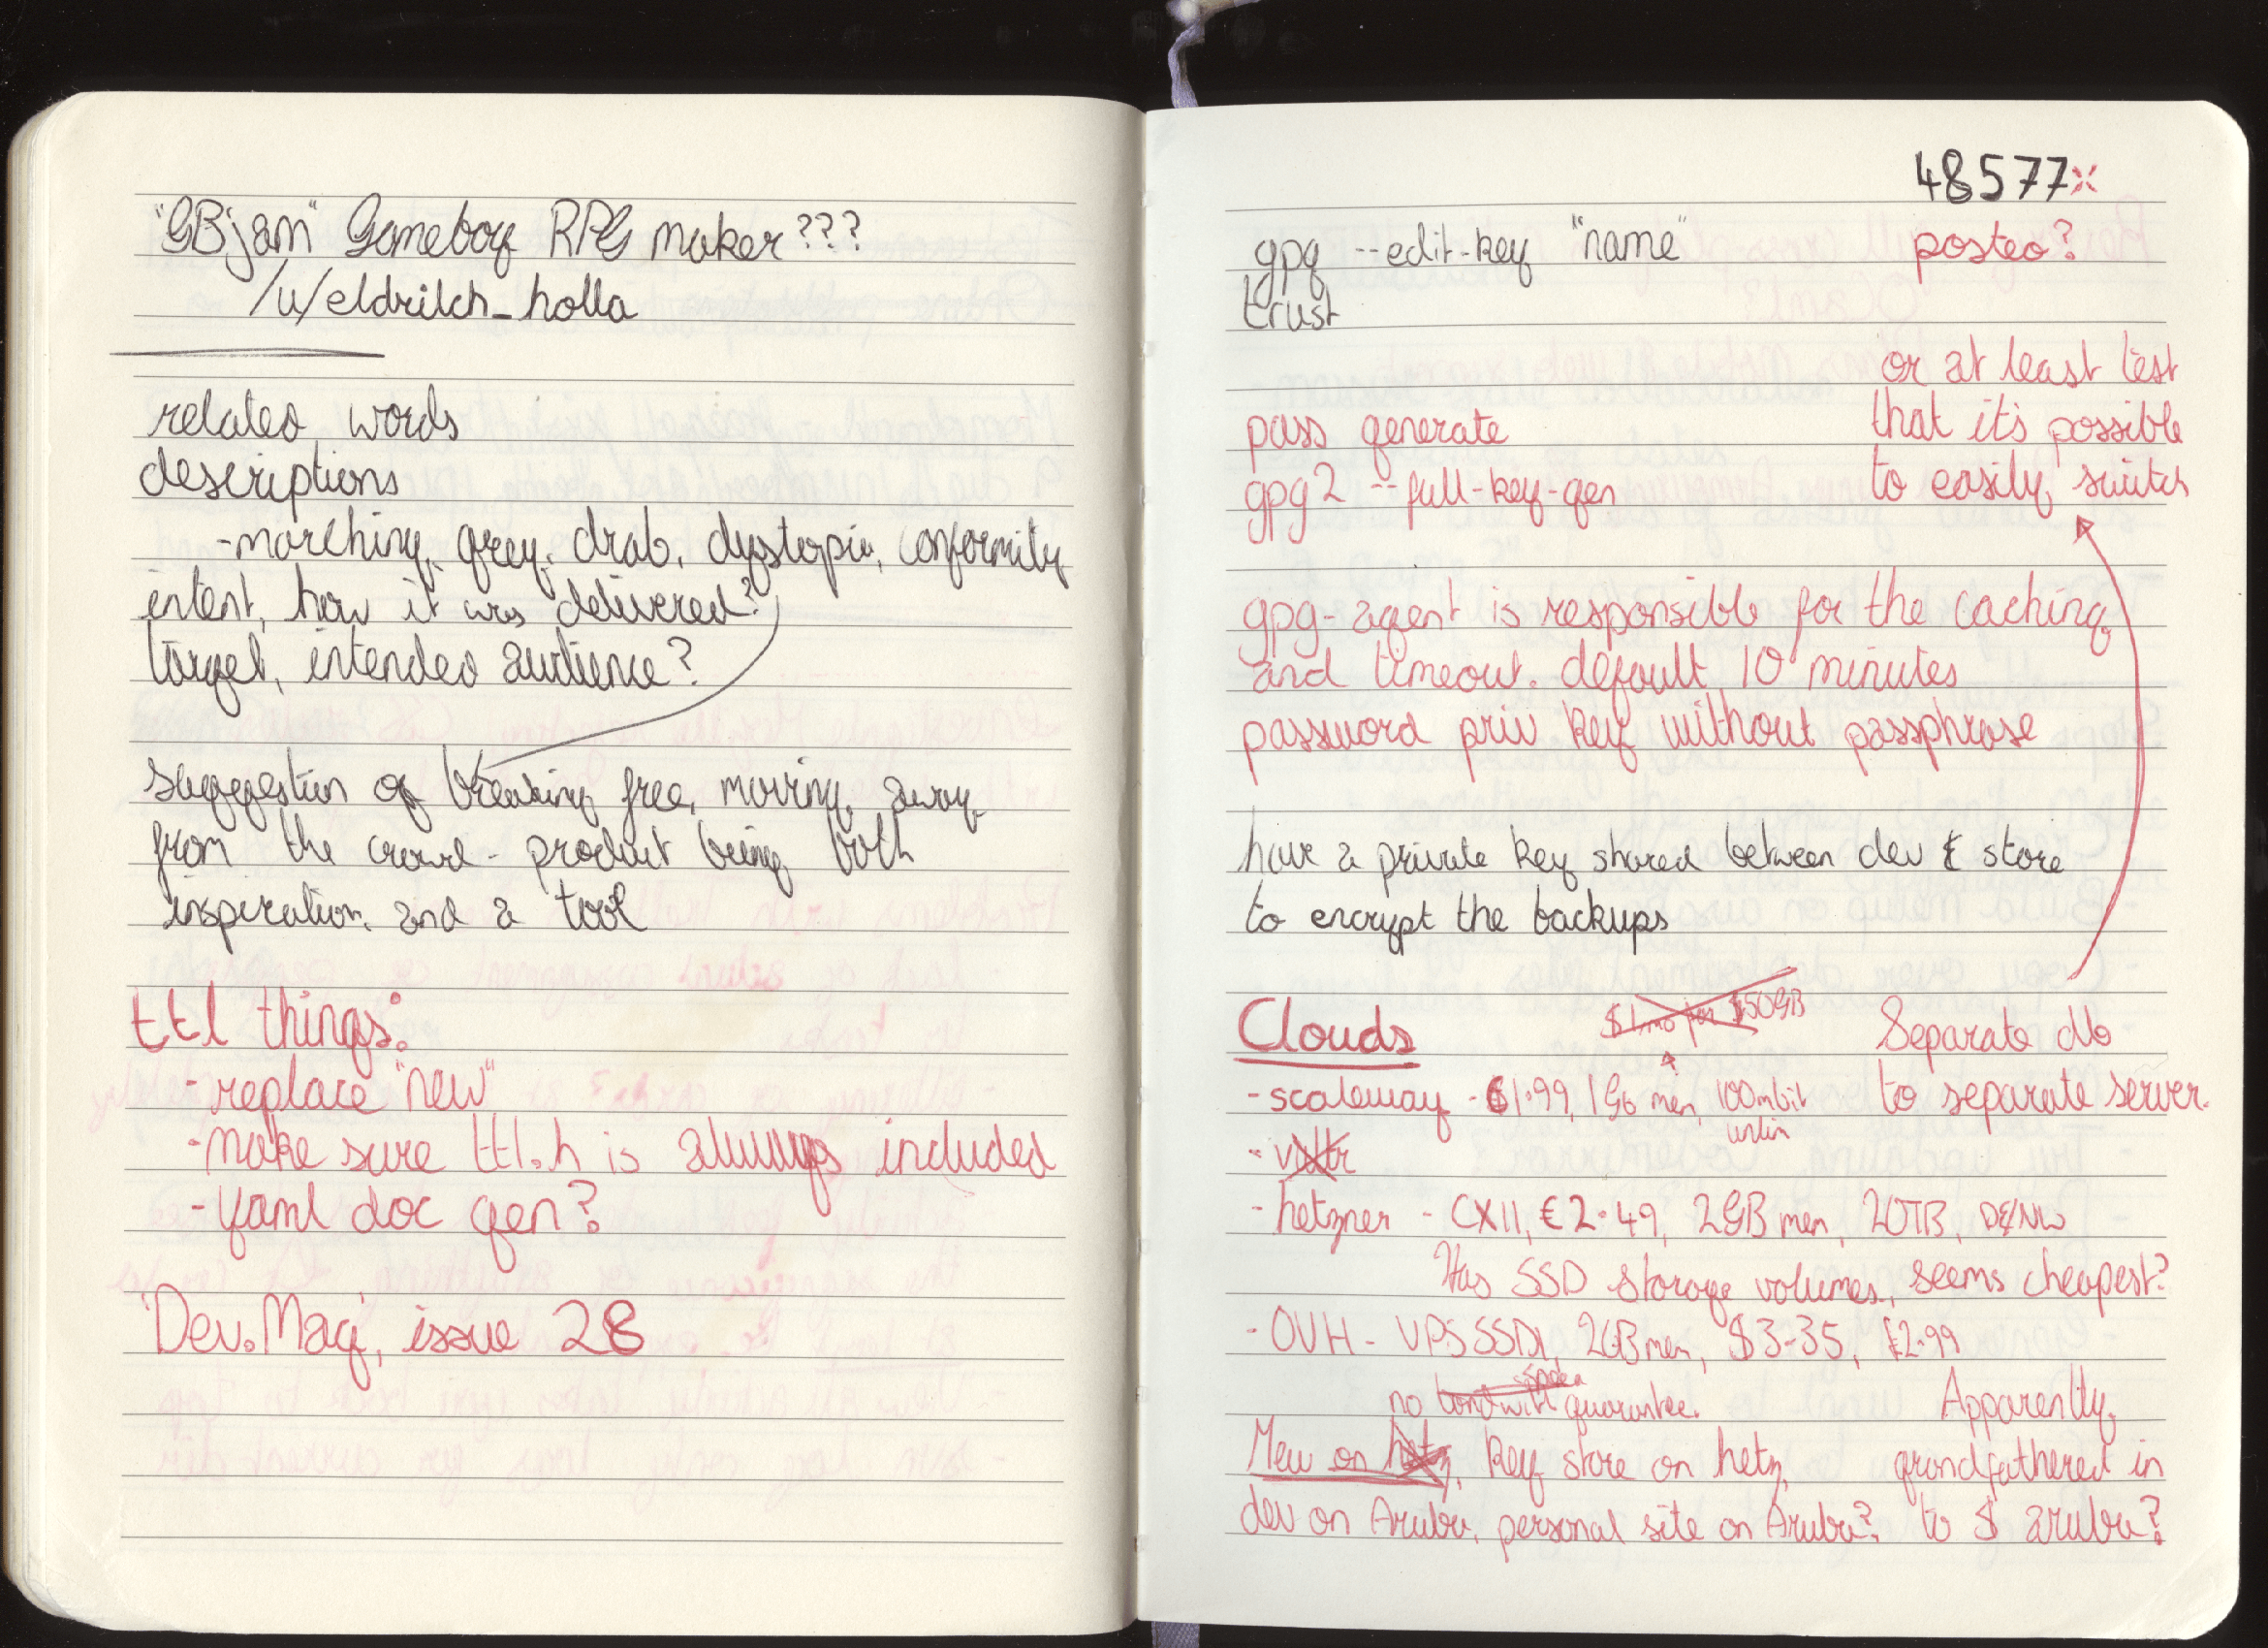 "GBjam" Gameboy RPG maker???
/u/eldritch_holla
related words
descriptions
- marching, grey, drab, dystopia, conformity
intent, how it was delivered?
target, intended audience?
suggestion of breaking free, moving away
from the crowd - product being both
inspiration and a tool
ttl things:
- replace "new"
- make sure ttl.h is always included
- yaml doc gen?
'Dev.Mag', issue 28
48577
gpg --edit-key "name"
posteo?
trust
or at least test
that it's possible
to easily switch
pass generate
gpg2 --full-key-gen
gpg-agent is responsible for the caching
and timeout. default 10 minutes
password priv key without passphrase
have a private key shared between dev & store
to encrypt the backups
Clouds
$1/mo for 50GB
Separate db
to separate server.
- scaleway - €1.99, 1Gb mem, 100mbit
unlim
- vultr
- hetzner - CX11, €2.49, 2GB mem, 20TB, DE
Has SSD storage volumes, seems cheapest?
- OVH - VPS SSD1, 2GB mem, $3.35, £2.99
no bandwith speed guarantee.
Mew on hetz, key store on hetz,
dev on Aruba, personal site on Aruba?
Apparently
grandfathered in
to $ aruba?